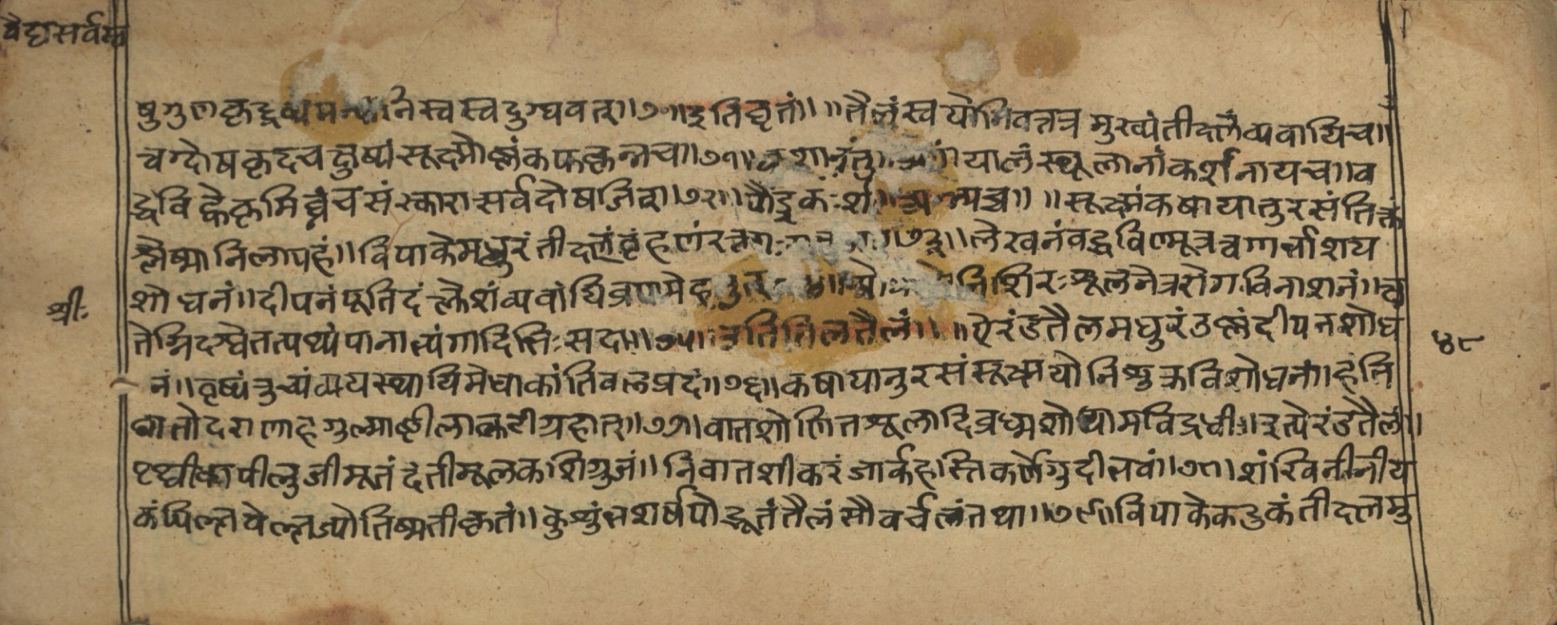 वैद्यसर्वस्व
षुगुलकृद्द्रव्यमन्यानिस्वस्वदुग्धवत्॥७०॥इतिघृतं॥ ॥तैलंस्वयोनिवत्तत्रमुख्यंतीक्ष्णंव्यवायिच॥
त्वग्दोषकृदचक्षुष्यंसूक्ष्मोष्णंकफकृन्नच॥७१॥कृशानांतु यालंस्थूलानांकर्शनायच॥व
द्धविट्कंकृमिघ्नंचसंस्कारात्सर्वदोषजित्॥७२॥ ॥सूक्ष्मंकषायानुरसंतिक्तं
श्लेष्मानिलापहं॥विपाकेमधुरंतीक्ष्णंबृंहणंरक्त ॥७३॥लेखनंवद्धविण्मूत्रत्वगर्भाशय
शोधनं॥दीपनं व्यवायिव्रणमेह योनिशिरःशूलनेत्ररोगविनाशनं॥
श्रीः
पानाभ्यंगादिभिःसदा॥७५॥इतितिलतैलं॥ ॥एरंडतैलमधुरंउष्णंदीपनशोध
४८
नं॥वृष्यंत्वच्यंवयस्थायिमेधाकांतिवलप्रदं॥७६॥कषायानुरसंसूक्ष्मंयोनिशुक्रविशोधनं॥हंति
वातोदरानाहगुल्माष्ठीलाकटीग्रहान्॥७७॥वातशोणितशूलादिव्रध्मशोथामविद्रधी॥इत्येरंडतैलं॥
पीलुजीमूतंदंतीमूलकशिग्रुजं॥निंवातशीकरंजार्कहस्तिकर्णेंगुदीभवं॥७८॥शंखिनीनीप
कंपिल्लवेल्लज्योतिष्मतीकृतं॥कुशुंभशर्षपोद्भूतंतैलंसौवर्चलंतथा॥७९॥विपाकेकटुकंतीक्ष्णमु